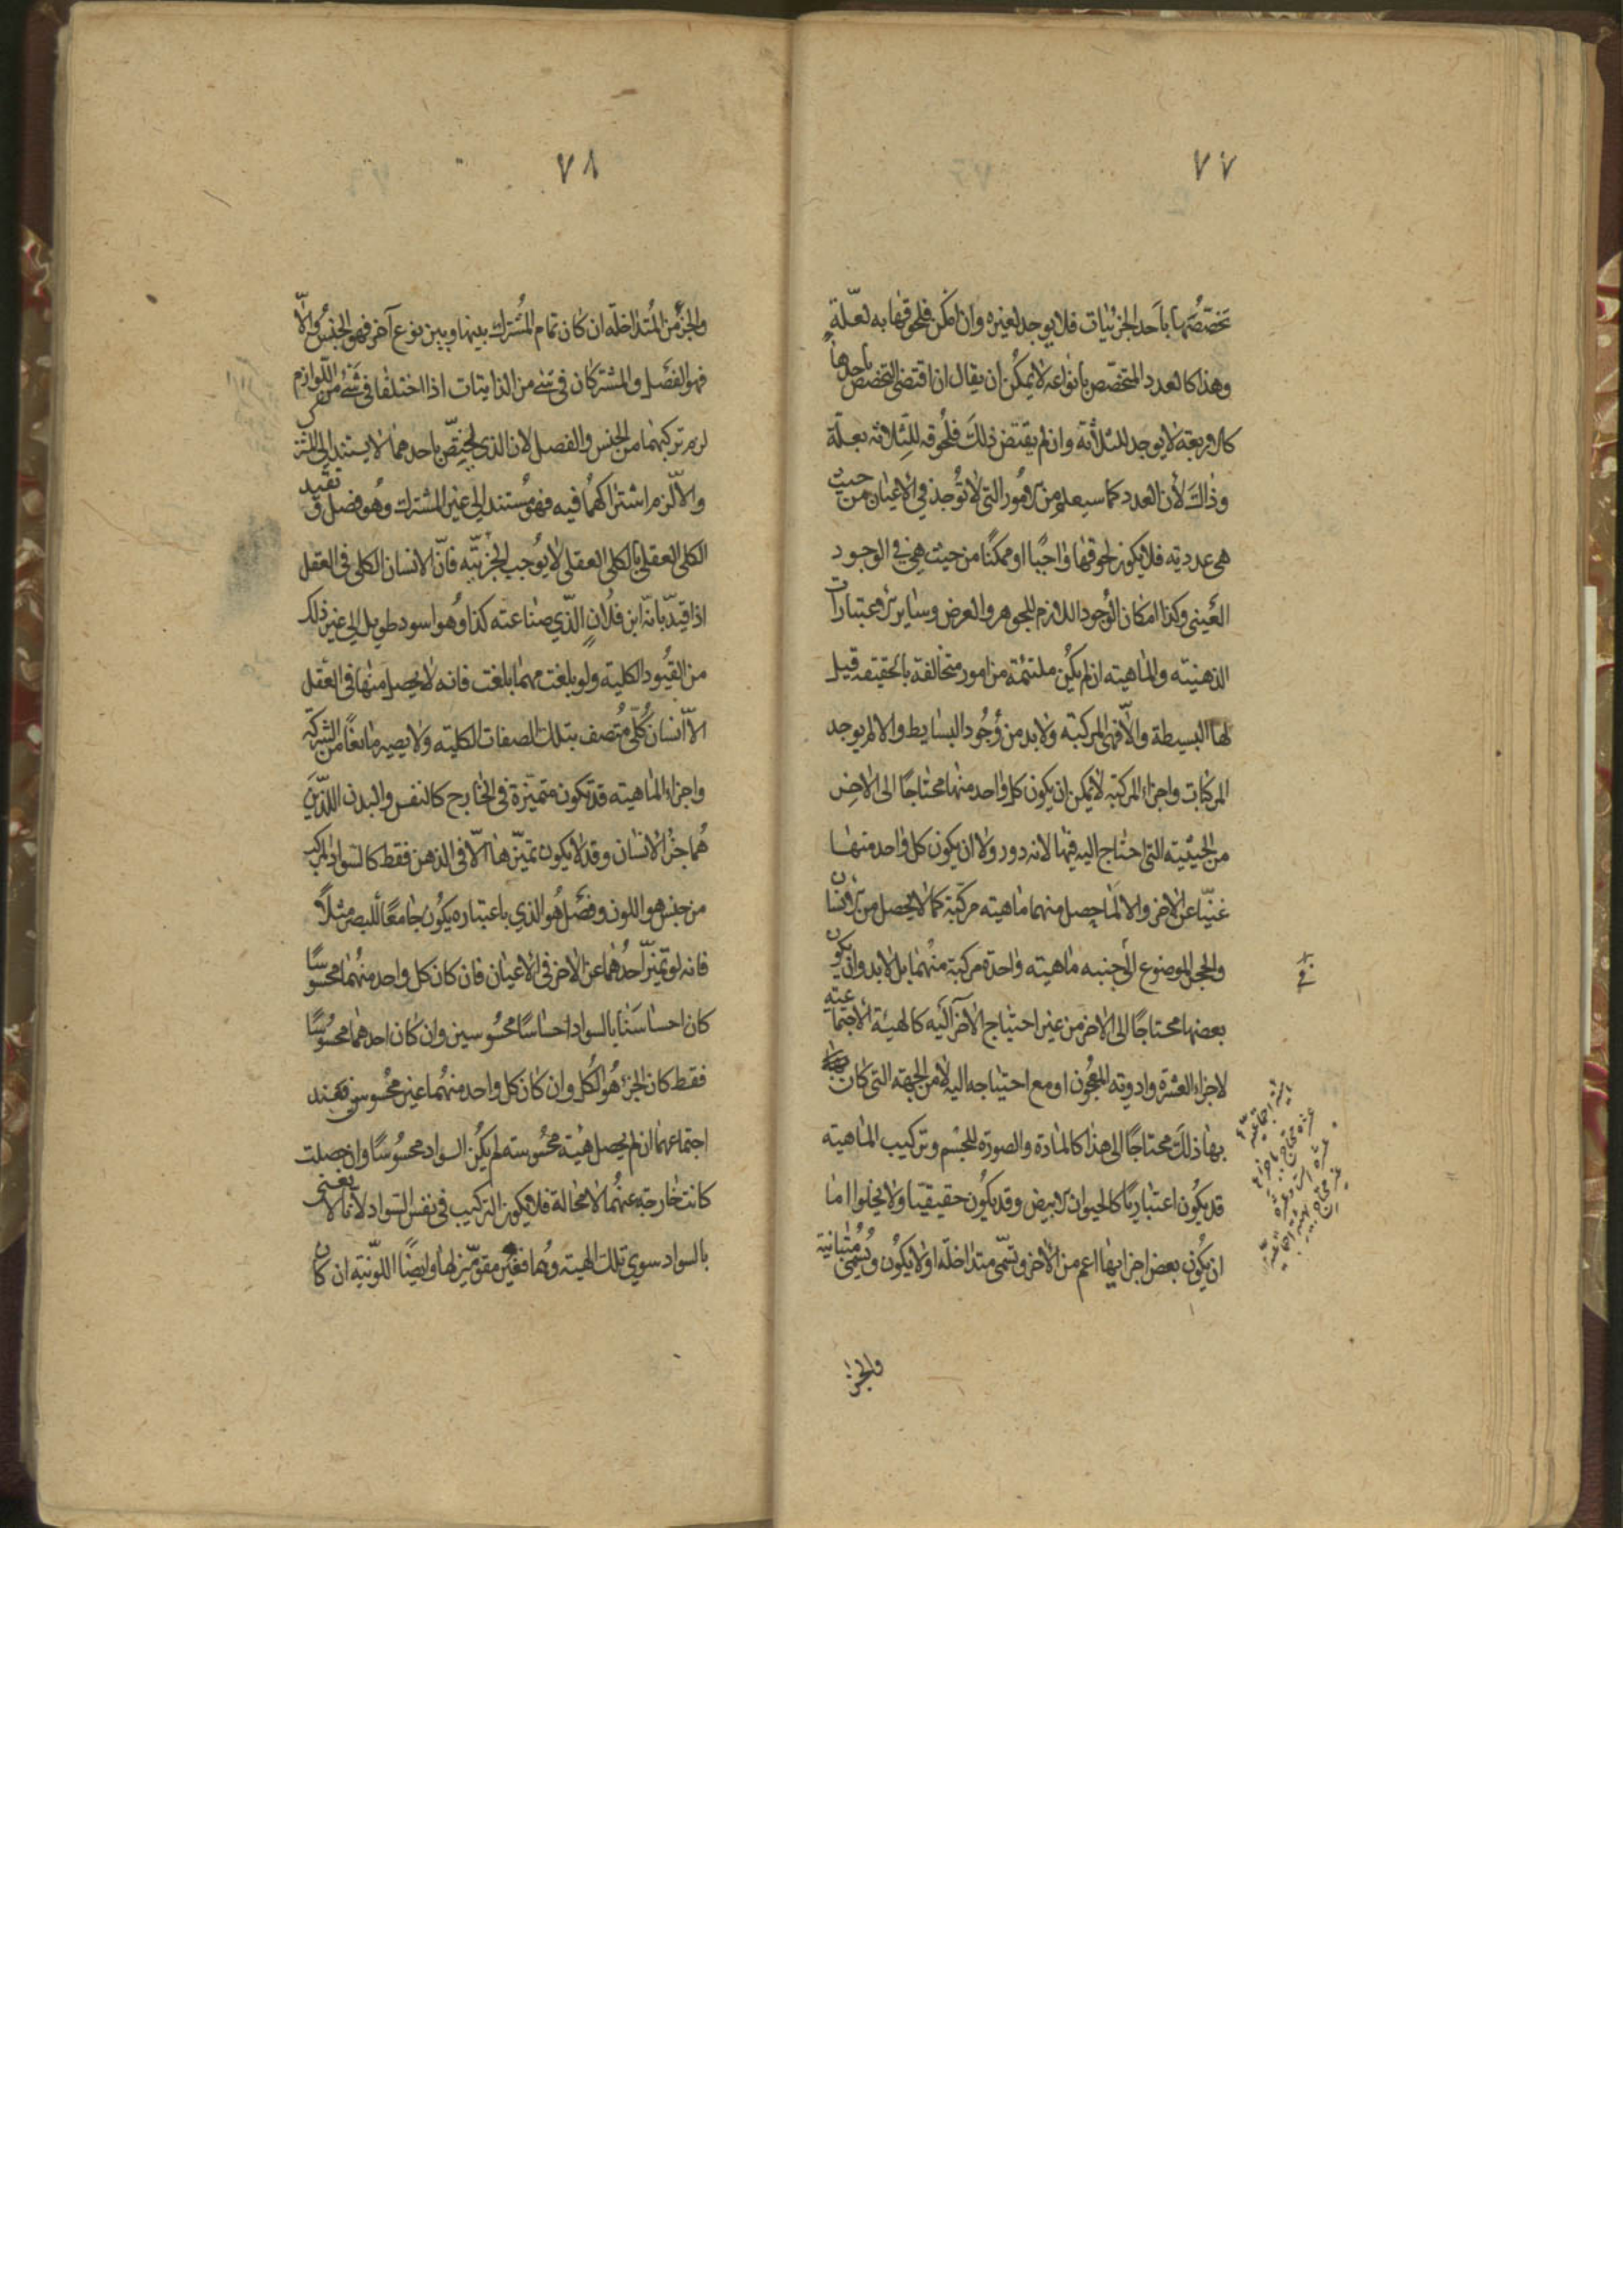 ٧٧
تخصّصها باحد الجزئيات فلا يوجد لغيره وان امكن فلحوقها به لعلّة
وهذا كالعدد المتخصّص بانواعه لا يمكن ان يقال ان اقتضى التخصّص باحدها
كالاربعة لا يوجد للثلاثة وان لم يقتض ذلك فلحوقه للثلاثة بعلّة
وذلك لأن العدد كما سيعلم من الامور التى لا توجد في الاعيان من حيث
هى عددية فلا يكون لحوقها واجبًا او ممكنًا من حيث هي في الوجود
العينى وكذا امكان الوجود اللازم للجوهر والعرض وساير الاعتبارات
الذهنيّة والماهية ان لم يكن ملتئمة من امور متخالفة بالحقيقة قيل
لها البسيطة والّا فهى المركبة ولا بد من وجود البسايط والا لم يوجد
المركبات واجزاء المركبة لا يمكن ان يكون كل واحد منها محتاجًا الى الاخر
من الحيثية التى احتاج اليه فيها لانه دور ولا ان يكون كل واحد منها
غنيّا عن الاخر والا لما يحصل منهما ماهية مركّبة كما لا يحصل من الانسان
والحجر الموضوع الى جنبه ماهية واحدة مركبة منهما بل لابد وان يكون
بعضها محتاجًا الى الاخر من غير احتياج الآخر اليه كالهيئة الاجتماعية
لاجزاء العشرة وادوية المعجون او مع احتياجه اليه لا من الجهة التى كان
بها ذلك محتاجًا الى هذا كالمادة والصورة للجسم وتركيب الماهية
قد يكون اعتباريًا كالحيوان الابيض وقد يكون حقيقيا ولا يخلوا اما
ان يكون بعض اجزايها اعم من الآخر وتسمّى متداخلة او لا يكون وتسمى متباينة
والجزء
٧٨
والجزء من المتداخلة ان كان تمام المشترك بينها وبين نوع آخر فهو الجنس والّا
فهو الفصل والمشتركان فى شئ من الذاتيات اذا اختلفا فى شئ من اللوازم
لزم تركبهما من الجنس والفصل لان الذى يختصّ باحدهما لا يستند الى المشترك
والا لزم اشتراكهما فيه فهو مستند الى غير المشترك وهو فصل وتقييد
الكلى العقلى بالكلى العقلى لا يوجب الجزئيّة فانّ الانسان الكلى فى العقل
اذا قيّد بانّه ابن فلان الّذي صناعته كذا وهو اسود طويل الى غير ذلك
من القيود الكلية ولو بلغت مهما بلغت فانه لا يحصل منها فى العقل
الّا انسان كلّى متصف بتلك الصفات الكلية ولا يصير مانعًا من الشركة
واجزاء الماهية قد تكون متميّزة فى الخارج كالنفس والبدن اللذين
هما جزء الانسان وقد لا يكون تميّزها الّا فى الذهن فقط كالسواد المركب
من جنس هو اللون وفصل هو الذي باعتباره يكون جامعًا للبصر مثلًا
فانه لو تميّز احدهما عن الاخر فى الاعيان فان كان كل واحد منهما محسوسًا
كان احساسنا بالسواد احساسًا محسوسين وان كان احدهما محسوسًا
فقط كان الجزء هو الكل وان كان كل واحد منهما غير محسوس فعند
اجتماعهما ان لم يحصل هيئة محسوسة لم يكن السواد محسوسًا وان حصلت
كانت خارجة عنهما لا محالة فلا يكون التركيب فى نفس السواد لانا لا نعنى
بالسواد سوي تلك الهيئة وهما فغير مقوّمين لها وايضًا اللونية ان كان